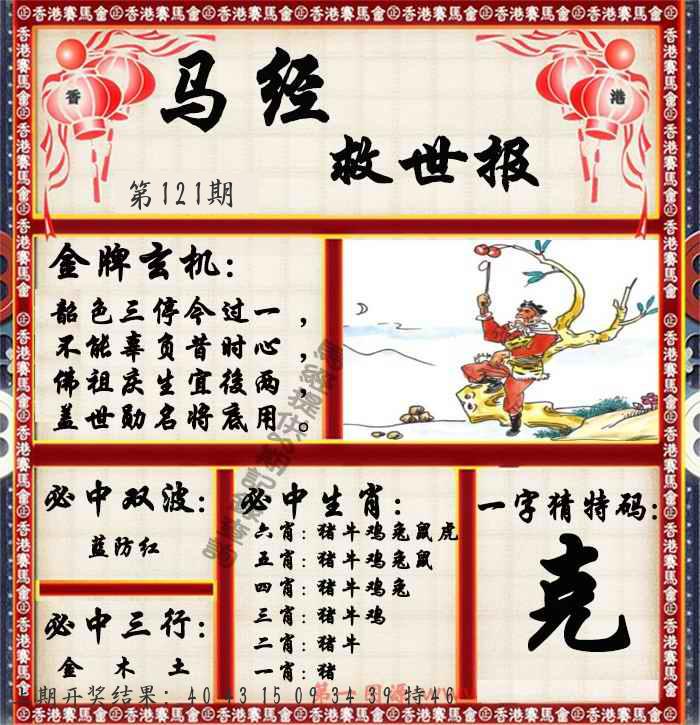 香港賽馬會
香
港
马经
救世报
第121期
金牌玄机:
韶色三停今过一,
不能辜负昔时心,
佛祖庆生宜後两,
盖世勋名将底用。
必中双波:
蓝防红
必中三行:
金 木 土
必中生肖:
六肖:猪牛鸡兔鼠虎
五肖:猪牛鸡兔鼠
四肖:猪牛鸡兔
三肖:猪牛鸡
二肖:猪牛
一肖:猪
一字猜特码:
克
期开奖结果:40 43 15 09 34 39 特46